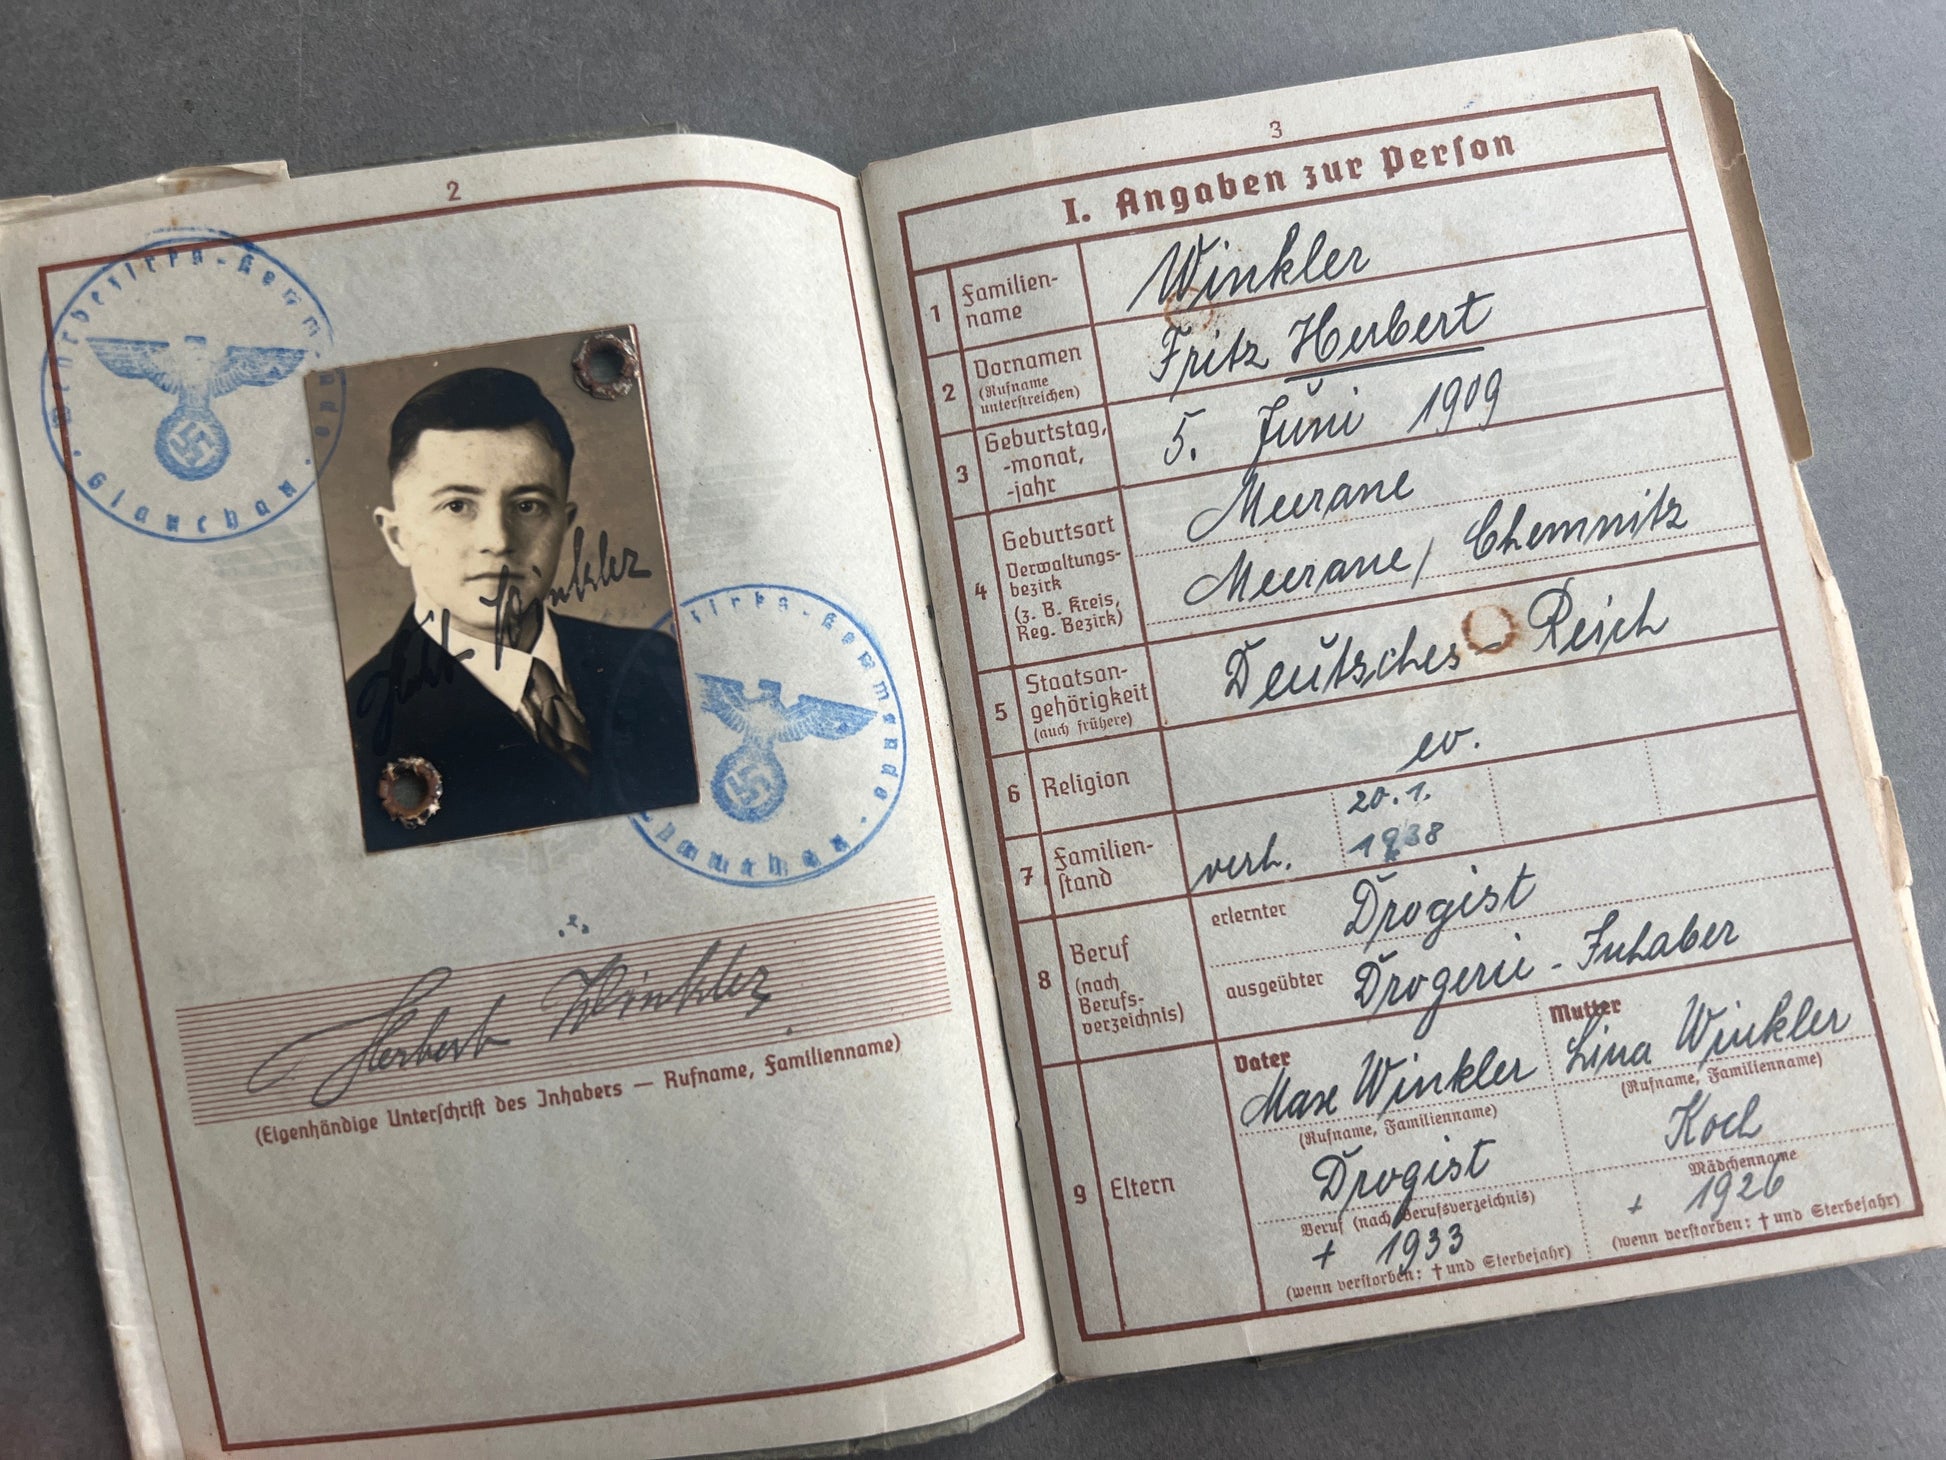 2
Wehrbezirks-Kommando
Glauchau
Winkler
Glauchau
Herbert Winkler
(Eigenhändige Unterschrift des Inhabers — Rufname, Familienname)
3
I. Angaben zur Person
1 Familien-
name
Winkler
2 Vornamen
(Rufname
unterstreichen)
Fritz Herbert
3 Geburtstag,
-monat,
-jahr
5. Juni 1909
4 Geburtsort
Verwaltungs-
bezirk
(z. B. Kreis,
Reg. Bezirk)
Meerane
Meerane / Chemnitz
5 Staatsan-
gehörigkeit
(auch frühere)
Deutsches-Reich
6 Religion
ev.
7 Familien-
stand
verh.
20.1.
1938
8 Beruf
(nach
Berufs-
verzeichnis)
erlernter Drogist
ausgeübter Drogerie-Inhaber
9 Eltern
Vater
Max Winkler
(Rufname, Familienname)
Drogist
Beruf (nach Berufsverzeichnis)
+ 1933
(wenn verstorben: † und Sterbejahr)
Mutter
Lina Winkler
(Rufname, Familienname)
Koch
Mädchenname
+ 1926
(wenn verstorben: † und Sterbejahr)